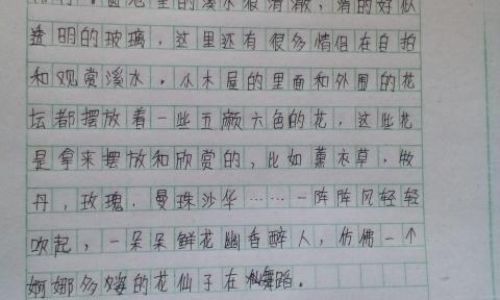 里的溪水很清澈,清的好似
透明的玻璃。这里还有很多情侣在自拍
和观赏溪水。小木屋的里面和外围的花
坛都摆放着一些五颜六色的花,这些花
是拿来摆放和欣赏的,比如薰衣草、牡
丹,玫瑰、曼珠沙华……一阵阵风轻轻
吹起,一朵朵鲜花幽香醉人,仿佛一个
婀娜多姿的花仙子在舞蹈。